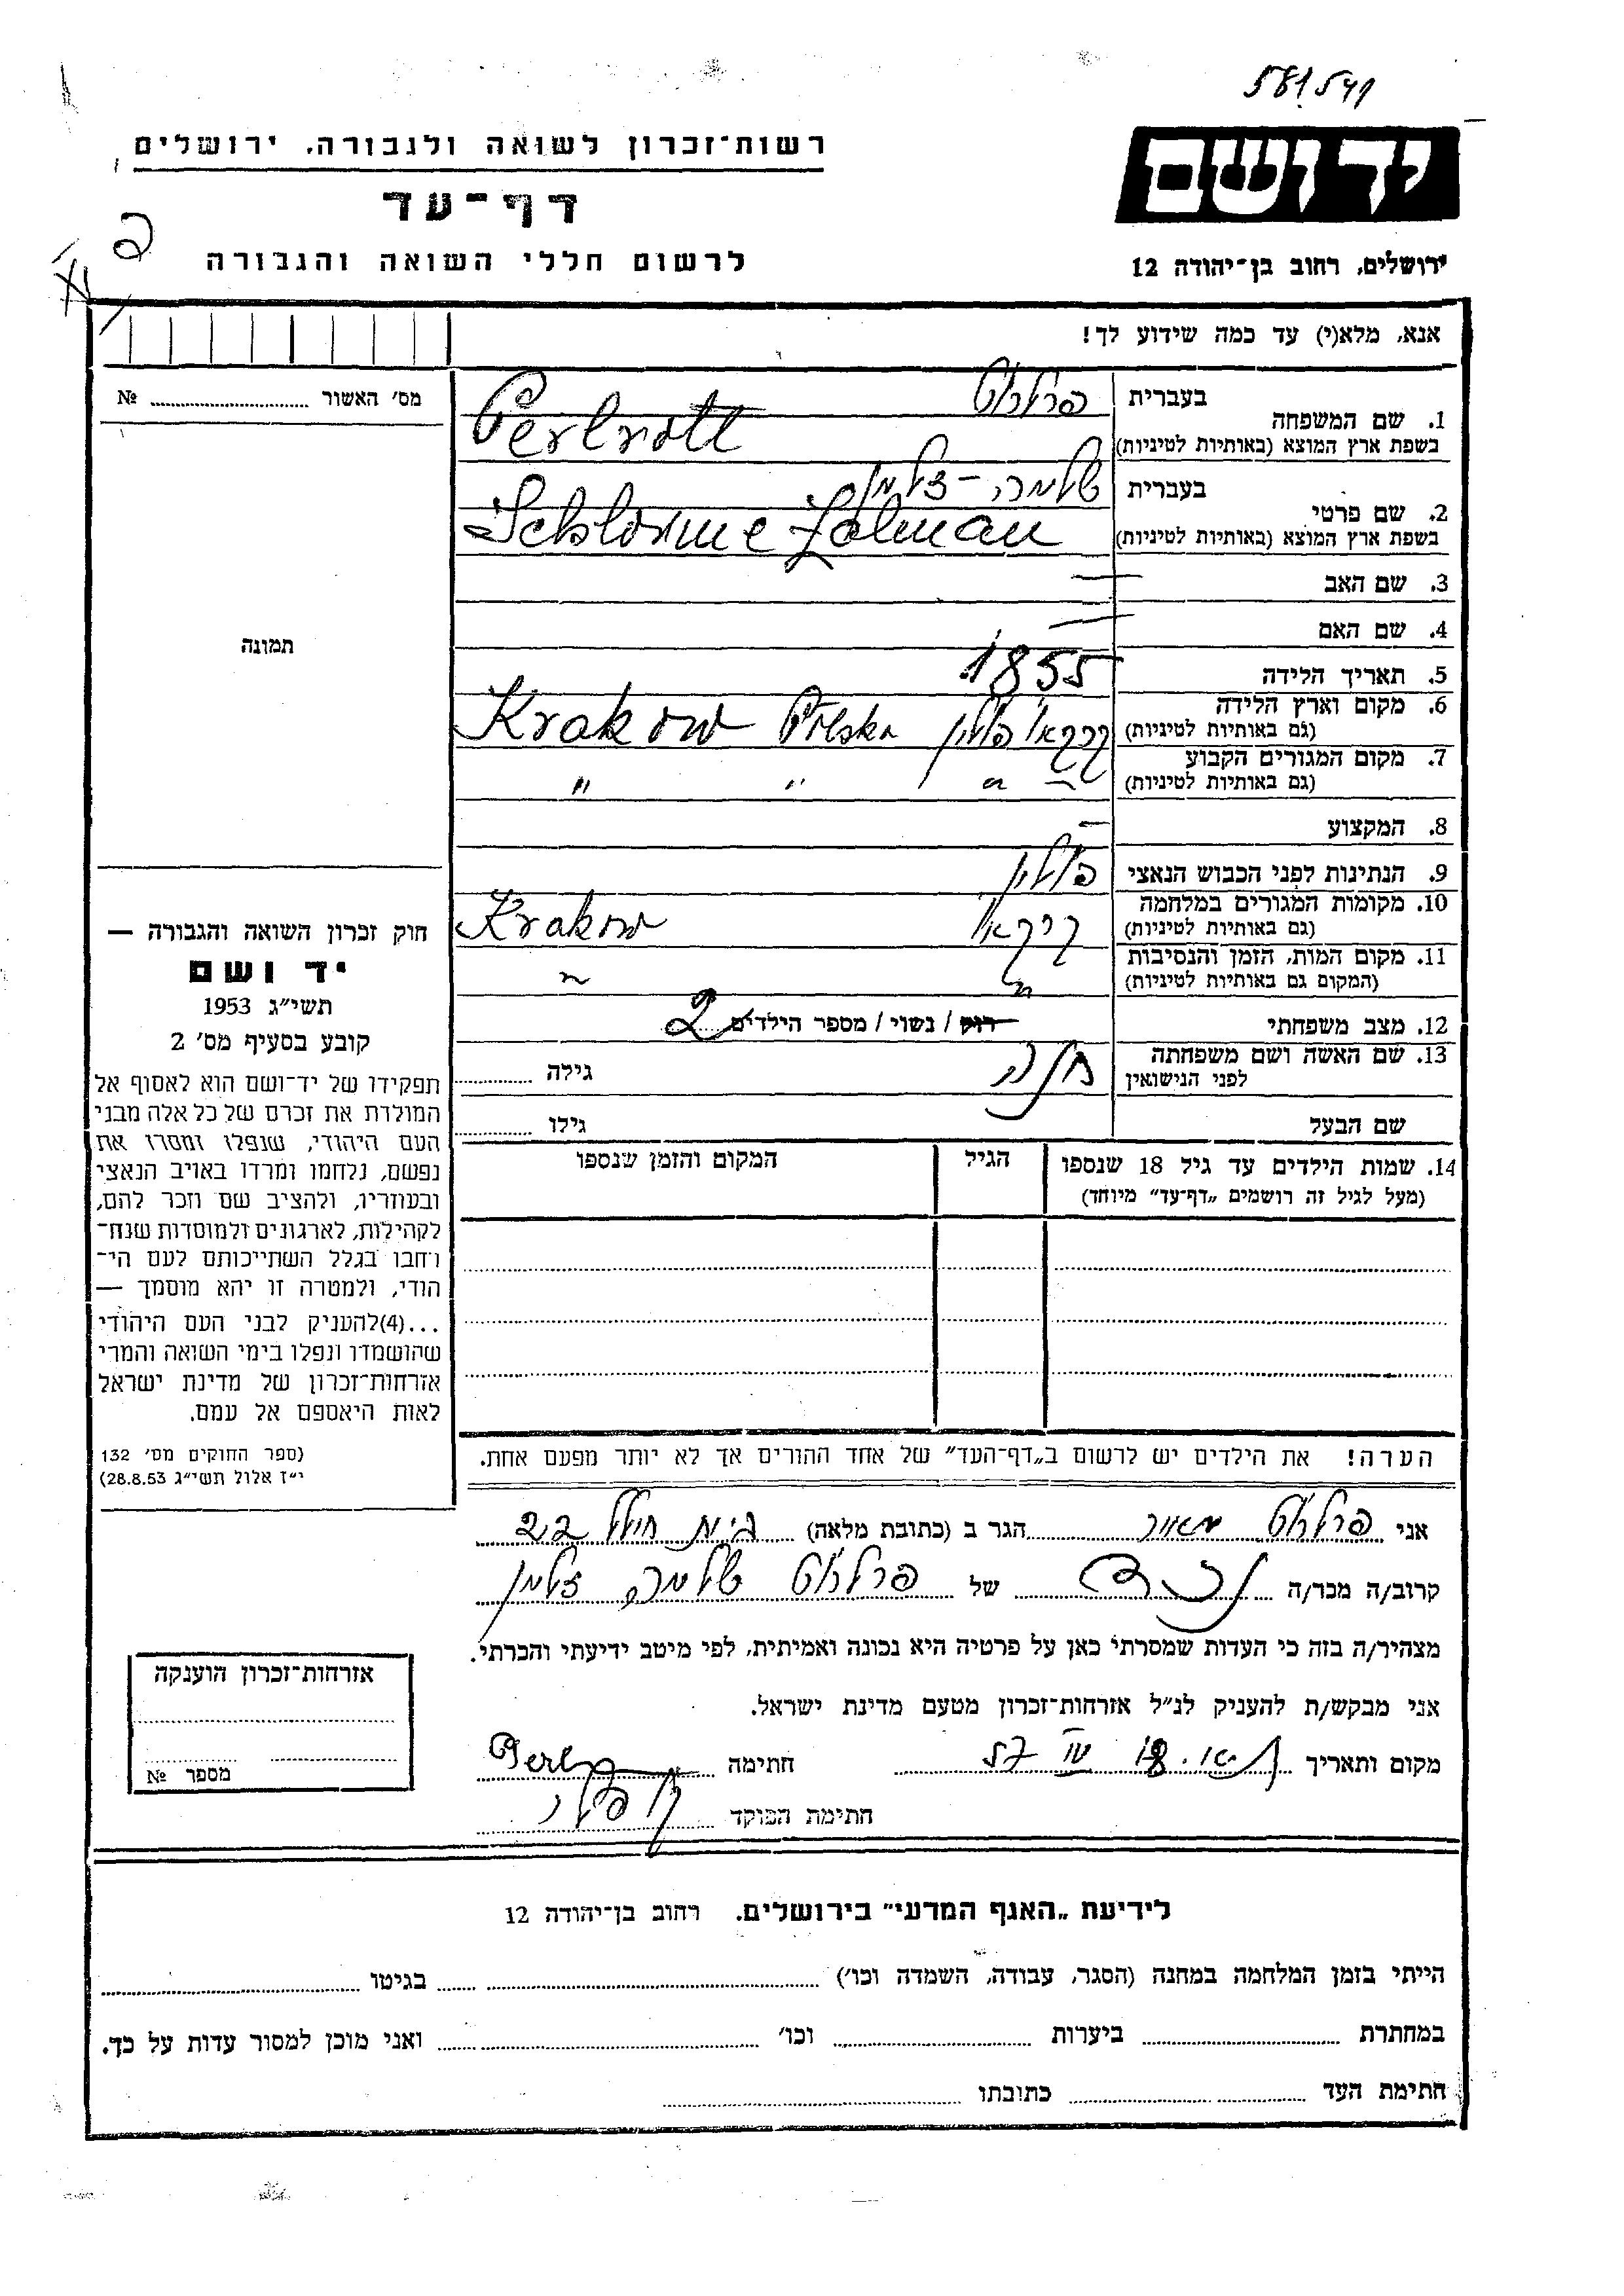 581541
רשות־זכרון לשואה ולגבורה, ירושלים
דף־עד
לרשום חללי השואה והגבורה
יד ושם
ירושלים, רחוב בן־יהודה 12
אנא, מלא(י) עד כמה שידוע לך!
מס׳ האשור № 
תמונה
1. שם המשפחה
בעברית פרלרוט
בשפת ארץ המוצא (באותיות לטיניות) Perlrott
2. שם פרטי
בעברית שלמה־זלמן
בשפת ארץ המוצא (באותיות לטיניות) Schlorme Zalman
3. שם האב —
4. שם האם —
5. תאריך הלידה 1855
6. מקום וארץ הלידה
(גם באותיות לטיניות) קרקאו פולין Krakow Polska
7. מקום המגורים הקבוע
(גם באותיות לטיניות) " " "
8. המקצוע —
9. הנתינות לפני הכבוש הנאצי פולין
10. מקומות המגורים במלחמה
(גם באותיות לטיניות) קרקאו Krakow
11. מקום המות, הזמן והנסיבות
(המקום גם באותיות לטיניות) " "
12. מצב משפחתי רוק / נשוי / מספר הילדים 2
13. שם האשה ושם משפחתה
לפני הנישואין חנה גילה
שם הבעל גילו
14. שמות הילדים עד גיל 18 שנספו
(מעל לגיל זה רושמים „דף־עד״ מיוחד)
הגיל
המקום והזמן שנספו
הערה! את הילדים יש לרשום ב„דף־העד״ של אחד ההורים אך לא יותר מפעם אחת.
חוק זכרון השואה והגבורה —
יד ושם
תשי״ג 1953
קובע בסעיף מס׳ 2
תפקידו של יד־ושם הוא לאסוף אל
המולדת את זכרם של כל אלה מבני
העם היהודי, שנפלו ומסרו את
נפשם, נלחמו ומרדו באויב הנאצי
ובעוזריו, ולהציב שם וזכר להם,
לקהילות, לארגונים ולמוסדות שנח־
רחבו בגלל השתייכותם לעם הי־
הודי, ולמטרה זו יהא מוסמך —
...(4)להעניק לבני העם היהודי
שהושמדו ונפלו בימי השואה והמרי
אזרחות־זכרון של מדינת ישראל
לאות היאספם אל עמם.
(ספר החוקים מס׳ 132
י״ז אלול תשי״ג 28.8.53)
אני פרלרוט מאיר הגר ב (כתובת מלאה) 22
קרוב/ה מכר/ה נכד של פרלרוט שלמה זלמן
מצהיר/ה בזה כי העדות שמסרתי כאן על פרטיה היא נכונה ואמיתית, לפי מיטב ידיעתי והכרתי.
אני מבקש/ת להעניק לנ״ל אזרחות־זכרון מטעם מדינת ישראל.
מקום ותאריך IV 57 חתימה Perl
חתימת הפוקד
אזרחות־זכרון הוענקה
מספר №
לידיעת „האגף המדעי״ בירושלים. רחוב בן־יהודה 12
הייתי בזמן המלחמה במחנה (הסגר, עבודה, השמדה וכו׳) בגיטו
במחתרת ביערות וכו׳ ואני מוכן למסור עדות על כך.
חתימת העד כתובתו